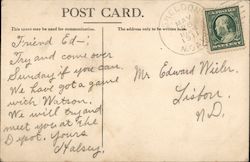 POST CARD.
This space may be used for communication.
The address only to be written here.
Friend Ed-;
Try and come over
Sunday if you can.
We have got a game
with Watson.
We will try and
meet you at the
Depot. Yours
Halsey.
Mr Edward Wieler.
Lisbon
N.D.
MAY
N.DAK